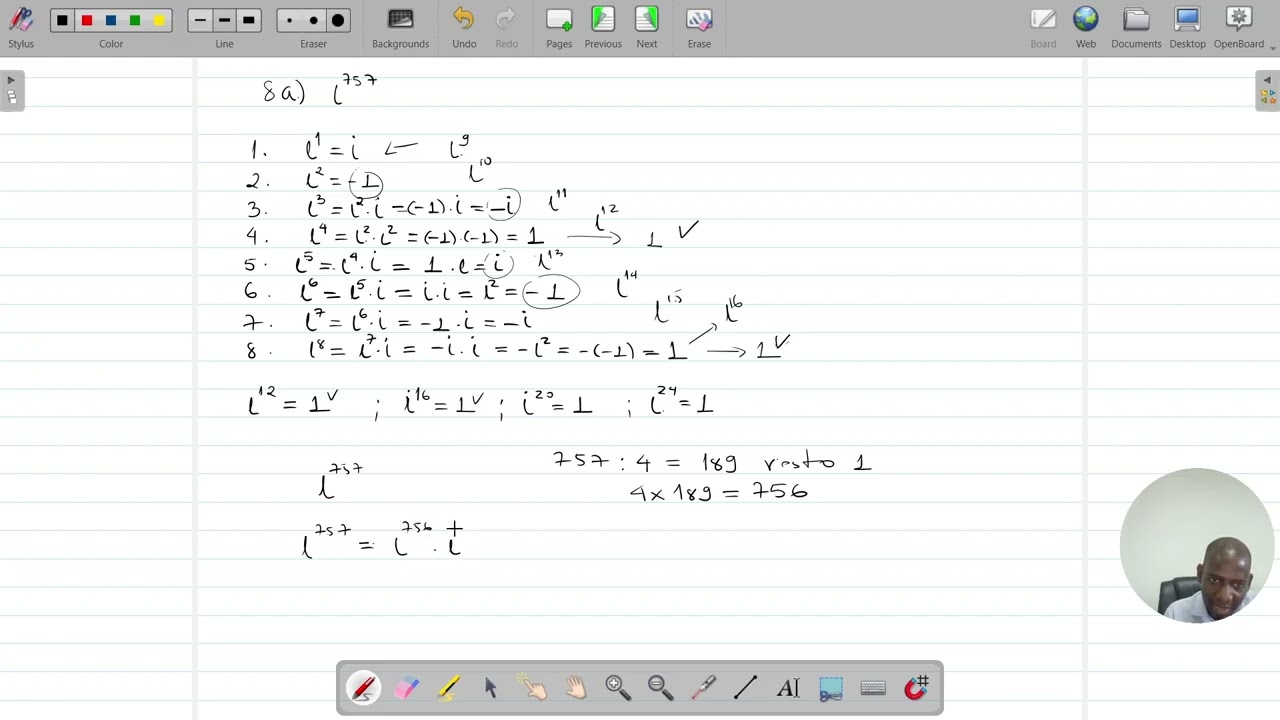 Stylus Color Line Eraser Backgrounds Undo Redo Pages Previous Next Erase Board Web Documents Desktop OpenBoard
8a.) i^757
1. i^1 = i ← i^9
2. i^2 = -1 i^10
3. i^3 = i^2·i = (-1)·i = -i i^11
4. i^4 = i^2·i^2 = (-1)·(-1) = 1 i^12 → 1 ✓
5. i^5 = i^4·i = 1·i = i i^13
6. i^6 = i^5·i = i·i = i^2 = -1 i^14
7. i^7 = i^6·i = -1·i = -i i^15 i^16
8. i^8 = i^7·i = -i·i = -i^2 = -(-1) = 1 → 1 ✓
i^12 = 1 ✓ ; i^16 = 1 ✓ ; i^20 = 1 ; i^24 = 1
i^757
757 : 4 = 189 resto 1
4 x 189 = 756
i^757 = i^756 · i